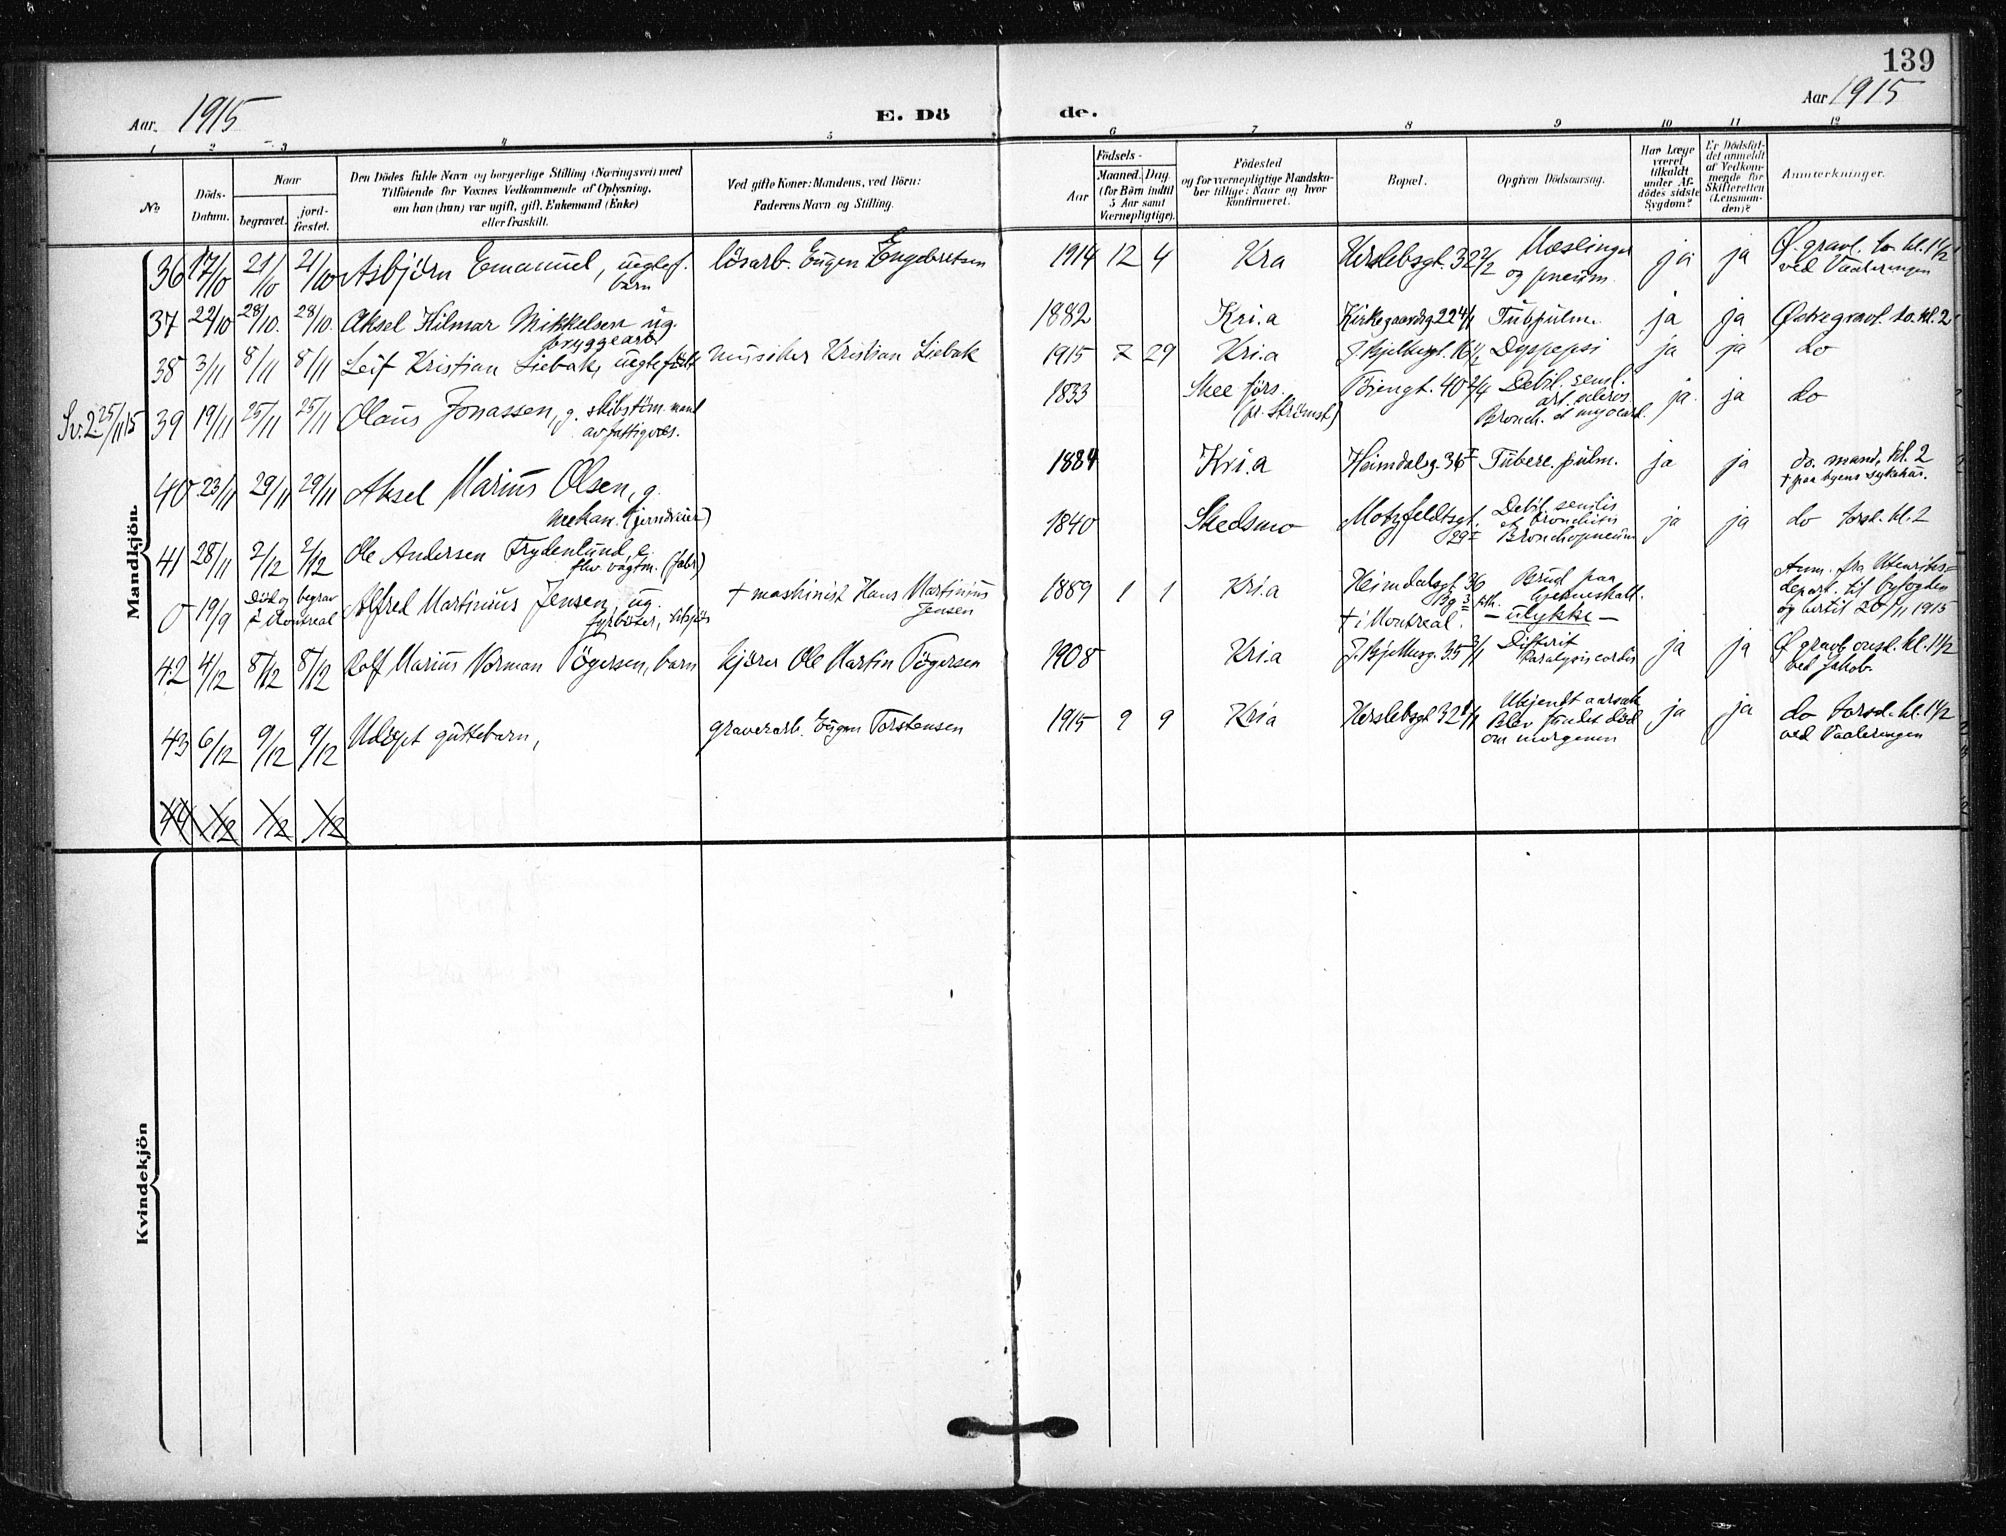 139
Aar. 1915 E. Dö de. Aar 1915
1 2 3 4 5 6 7 8 9 10 11 12
No.
Döds-
Datum.
Naar
begravet.
jord-
fæstet.
Den Dödes fulde Navn og borgerlige Stilling (Næringsvei) med
Tilföiende for Voxnes Vedkommende af Oplysning,
om han (hun) var ugift, gift, Enkemand (Enke)
eller fraskilt.
Ved gifte Koner: Mandens, ved Börn:
Faderens Navn og Stilling.
Födsels-
Aar
Maaned. Dag
(for Börn indtil
5 Aar samt
Værnepligtige).
Födested
og for værnepligtige Mandska-
ber tillige: Naar og hvor
konfirmeret.
Bopæl.
Opgiven Dödsaarsag.
Har Læge
været
tilkaldt
under Af-
dödes sidste
Sygdom?
Er Dödsfal-
det anmeldt
af Vedkom-
mende for
Skifteretten
(Lensman-
den)?
Anmærkninger.
Mandkjön.
36 17/10 21/10 21/10 Asbjörn Emanuel, uegtef. barn lösarb. Eugen Engebretsen 1914 12 4 Kra Herslebsgt. 32 2/2 Mæslinger og pneum. ja ja Ø. gravl. to. kl. 1 1/2 ved Vaalerengen
37 22/10 28/10. 28/10. Aksel Hilmar Mikkelsen ug. bryggearb. 1882 Kri.a Kirkegaardsg. 22 4/1 Tub. pulm. ja ja Østre gravl. to. kl. 2
38 3/11 8/11 8/11 Leif Kristian Liebak, uegtefödt musiker Kristian Liebak 1915 7 29 Kri.a Dyspepsi ja ja do
Sv. 2. 25/11 15 39 19/11 25/11 25/11 Olaus Jonassen, g. skibstöm.mand av fattigvæs. 1833 Skee förs. (pr. Strömst.) Töiengt. 40 2/4 Debil. senil. art. scleros. Bronch. et myocard. ja. ja do
40 23/11 29/11 29/11 Aksel Marius Olsen, g. mekan. (jerndreier) 1884 Kri.a Heimdalsg. 36 I Tuberc. pulm. ja ja do. mand. kl. 2 + paa byens sykehus.
41 28/11 2/12 2/12 Ole Andersen Frydenlund, e. fhv. vagtm. (fabr.) 1840 Skedsmo Motzfeldtsgt. 29 I Debil. senilis et bronchitis Bronchopneum ja ja do torsd. kl. 2
0 19/9 Död og begrav i Montreal Alfred Martinius Jensen, ug. fyrböter, + maskinist Hans Martinius Jensen 1889 1 1 Kri.a Heimdalsgt. 36 + i Montreal. Brud paa hjerneskall. — ulykke — Anm. fra Utenriks- depart. til byfogden og hertil 20/11 1915
42 4/12 8/12 8/12 Rolf Marius Norman Tögersen, barn kjörer Ole Martin Tögersen 1908 Kri.a 3/1 Difterit Paralysis cordis ja ja Ø gravl. onsd. kl. 1 1/2 ved Jakob.
43 6/12 9/12 9/12 Udöpt guttebarn, graverarb. Eugen Torstensen 1915 9 9 Kria Herslebsgt 32 1/1 Ukjendt aarsak Blev fundet död om morgenen ja ja do torsd. kl. 1 1/2 ved Vaalerengen
44 /12 /12 /12
Kvindekjön